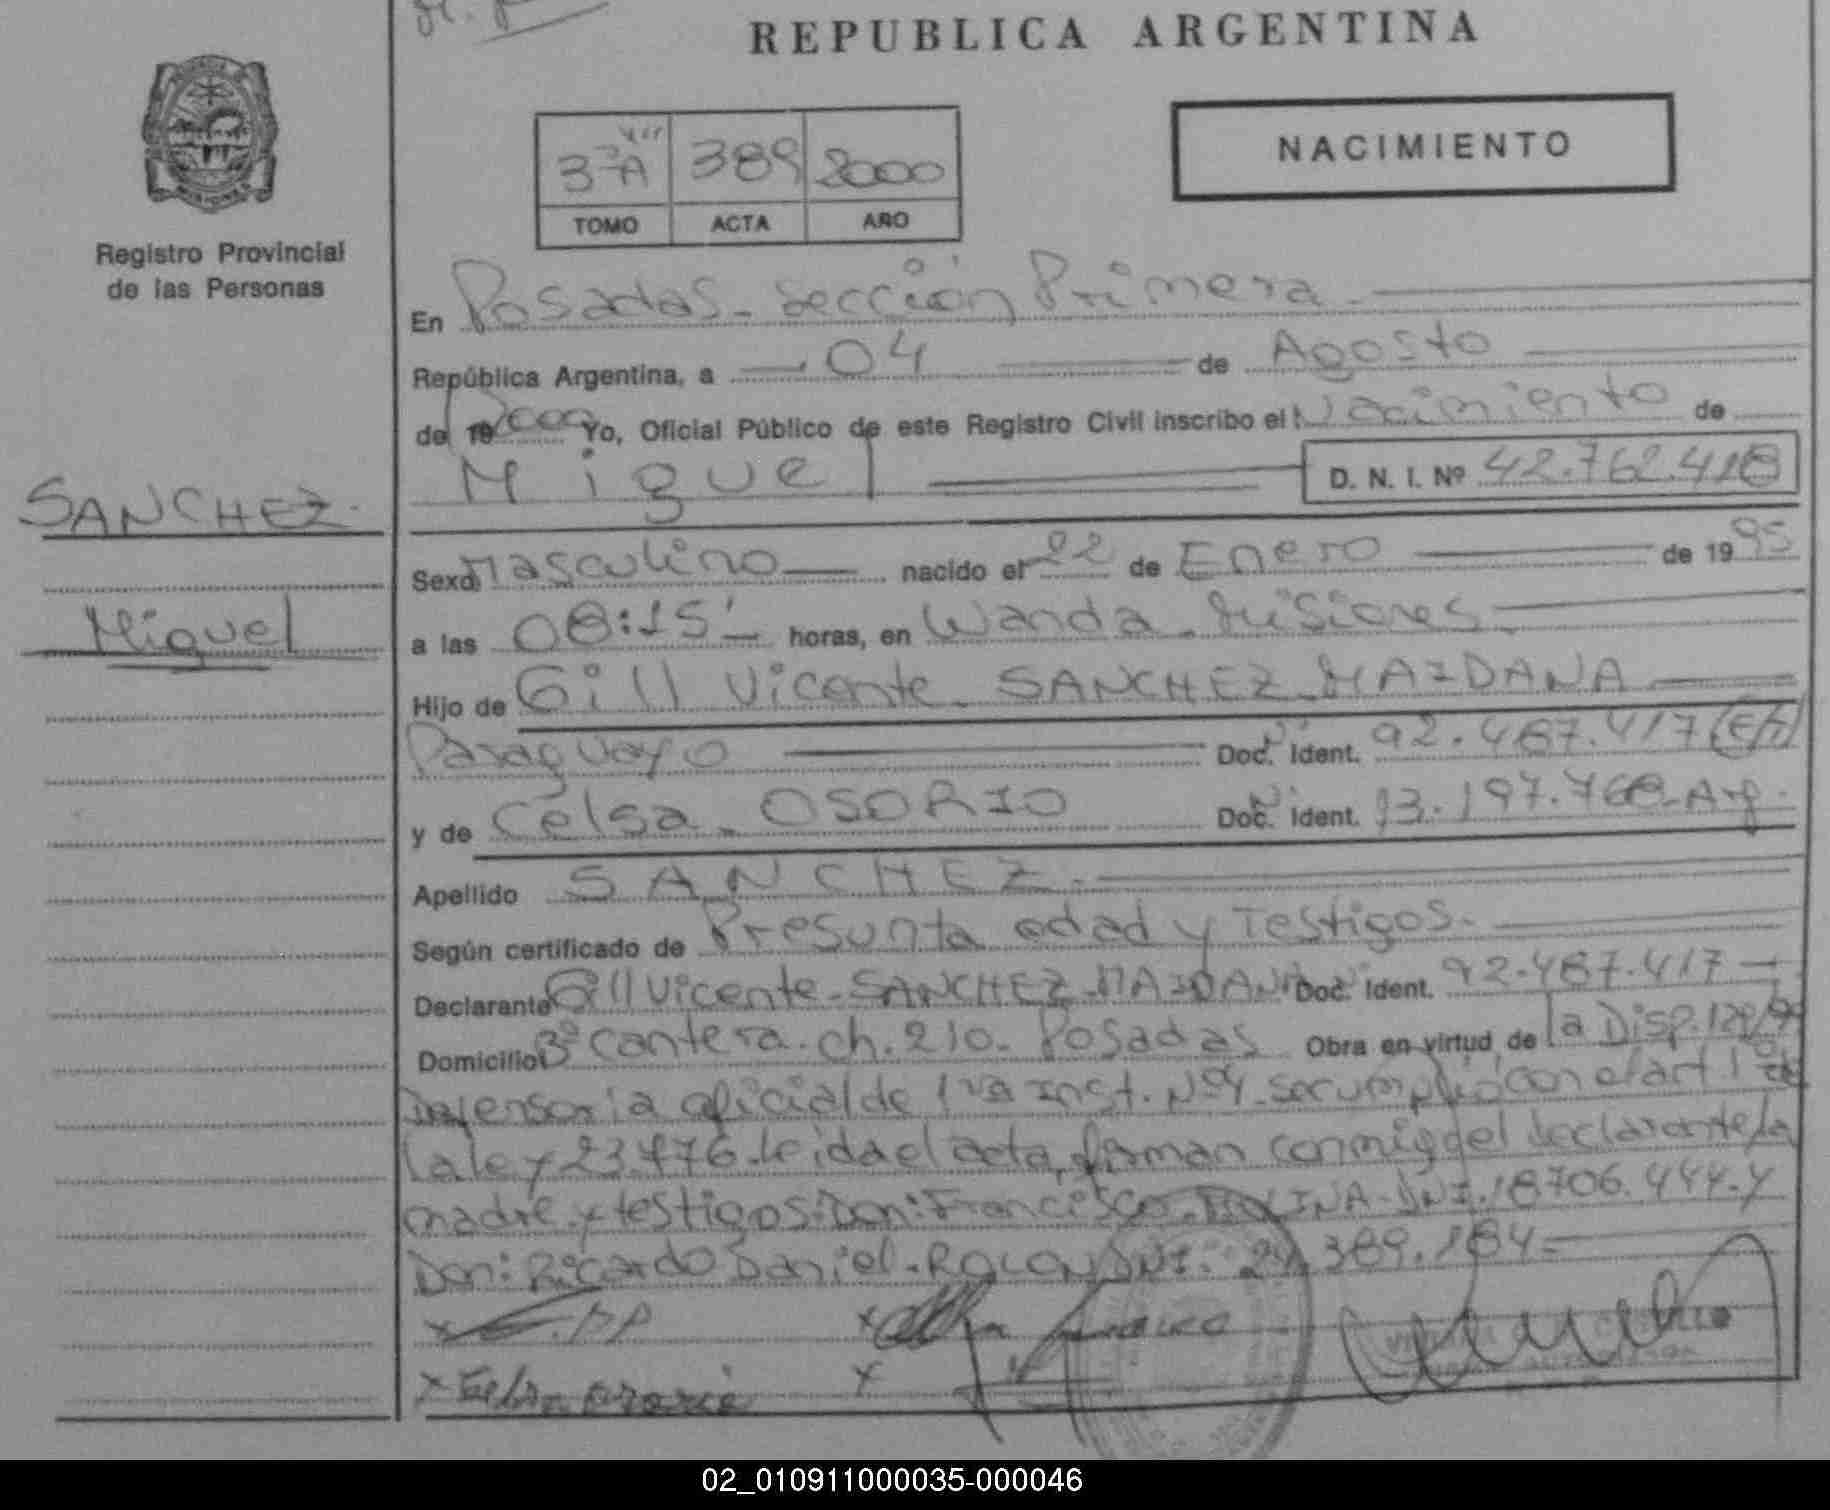 REPUBLICA ARGENTINA
NACIMIENTO
3ºA 389 2000
TOMO ACTA AÑO
Registro Provincial
de las Personas
En Posadas - sección Primera
República Argentina, a 04 de Agosto
de 2000 Yo, Oficial Público de este Registro Civil inscribo el Nacimiento de
Miguel D. N. I. Nº 42.762.418
SANCHEZ
Miguel
Sexo Masculino nacido el 22 de Enero de 1995
a las 08:15' horas, en Wanda - Misiones
Hijo de Gill Vicente - SANCHEZ MAIDANA
Paraguayo Doc. Ident. 92.487.417
y de Celsa - OSORIO Doc. Ident. 13.197.768 - Arg.
Apellido SANCHEZ.
Según certificado de Presunta edad y Testigos.
Declarante Gill Vicente - SANCHEZ MAIDANA Doc. Ident. 92.487.417
Domicilio 3º Cantera. ch. 210. Posadas Obra en virtud de la Disp.
Defensoria oficial de 1ra Inst. Nº4. se cumplió con el art 1º de
la ley 23.476. leida el acta, firman conmigo el declarante, la
madre y testigos: Don: Francisco DNI. 18706.444. y
Don: Ricardo Daniel. ROLON DNI. 24.389.184
02_010911000035-000046